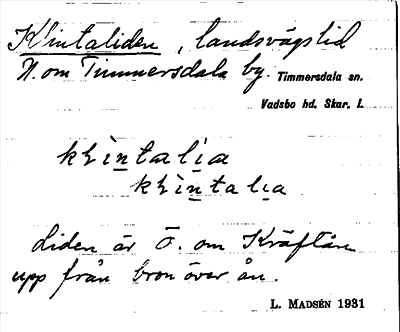 Klintaliden, landsvägslid
N. om Timmersdala by. Timmersdala sn.
Vadsbo hd. Skar. l.
Liden är Ö. om Kräftån
upp från bron över ån.
L. MADSÉN 1931